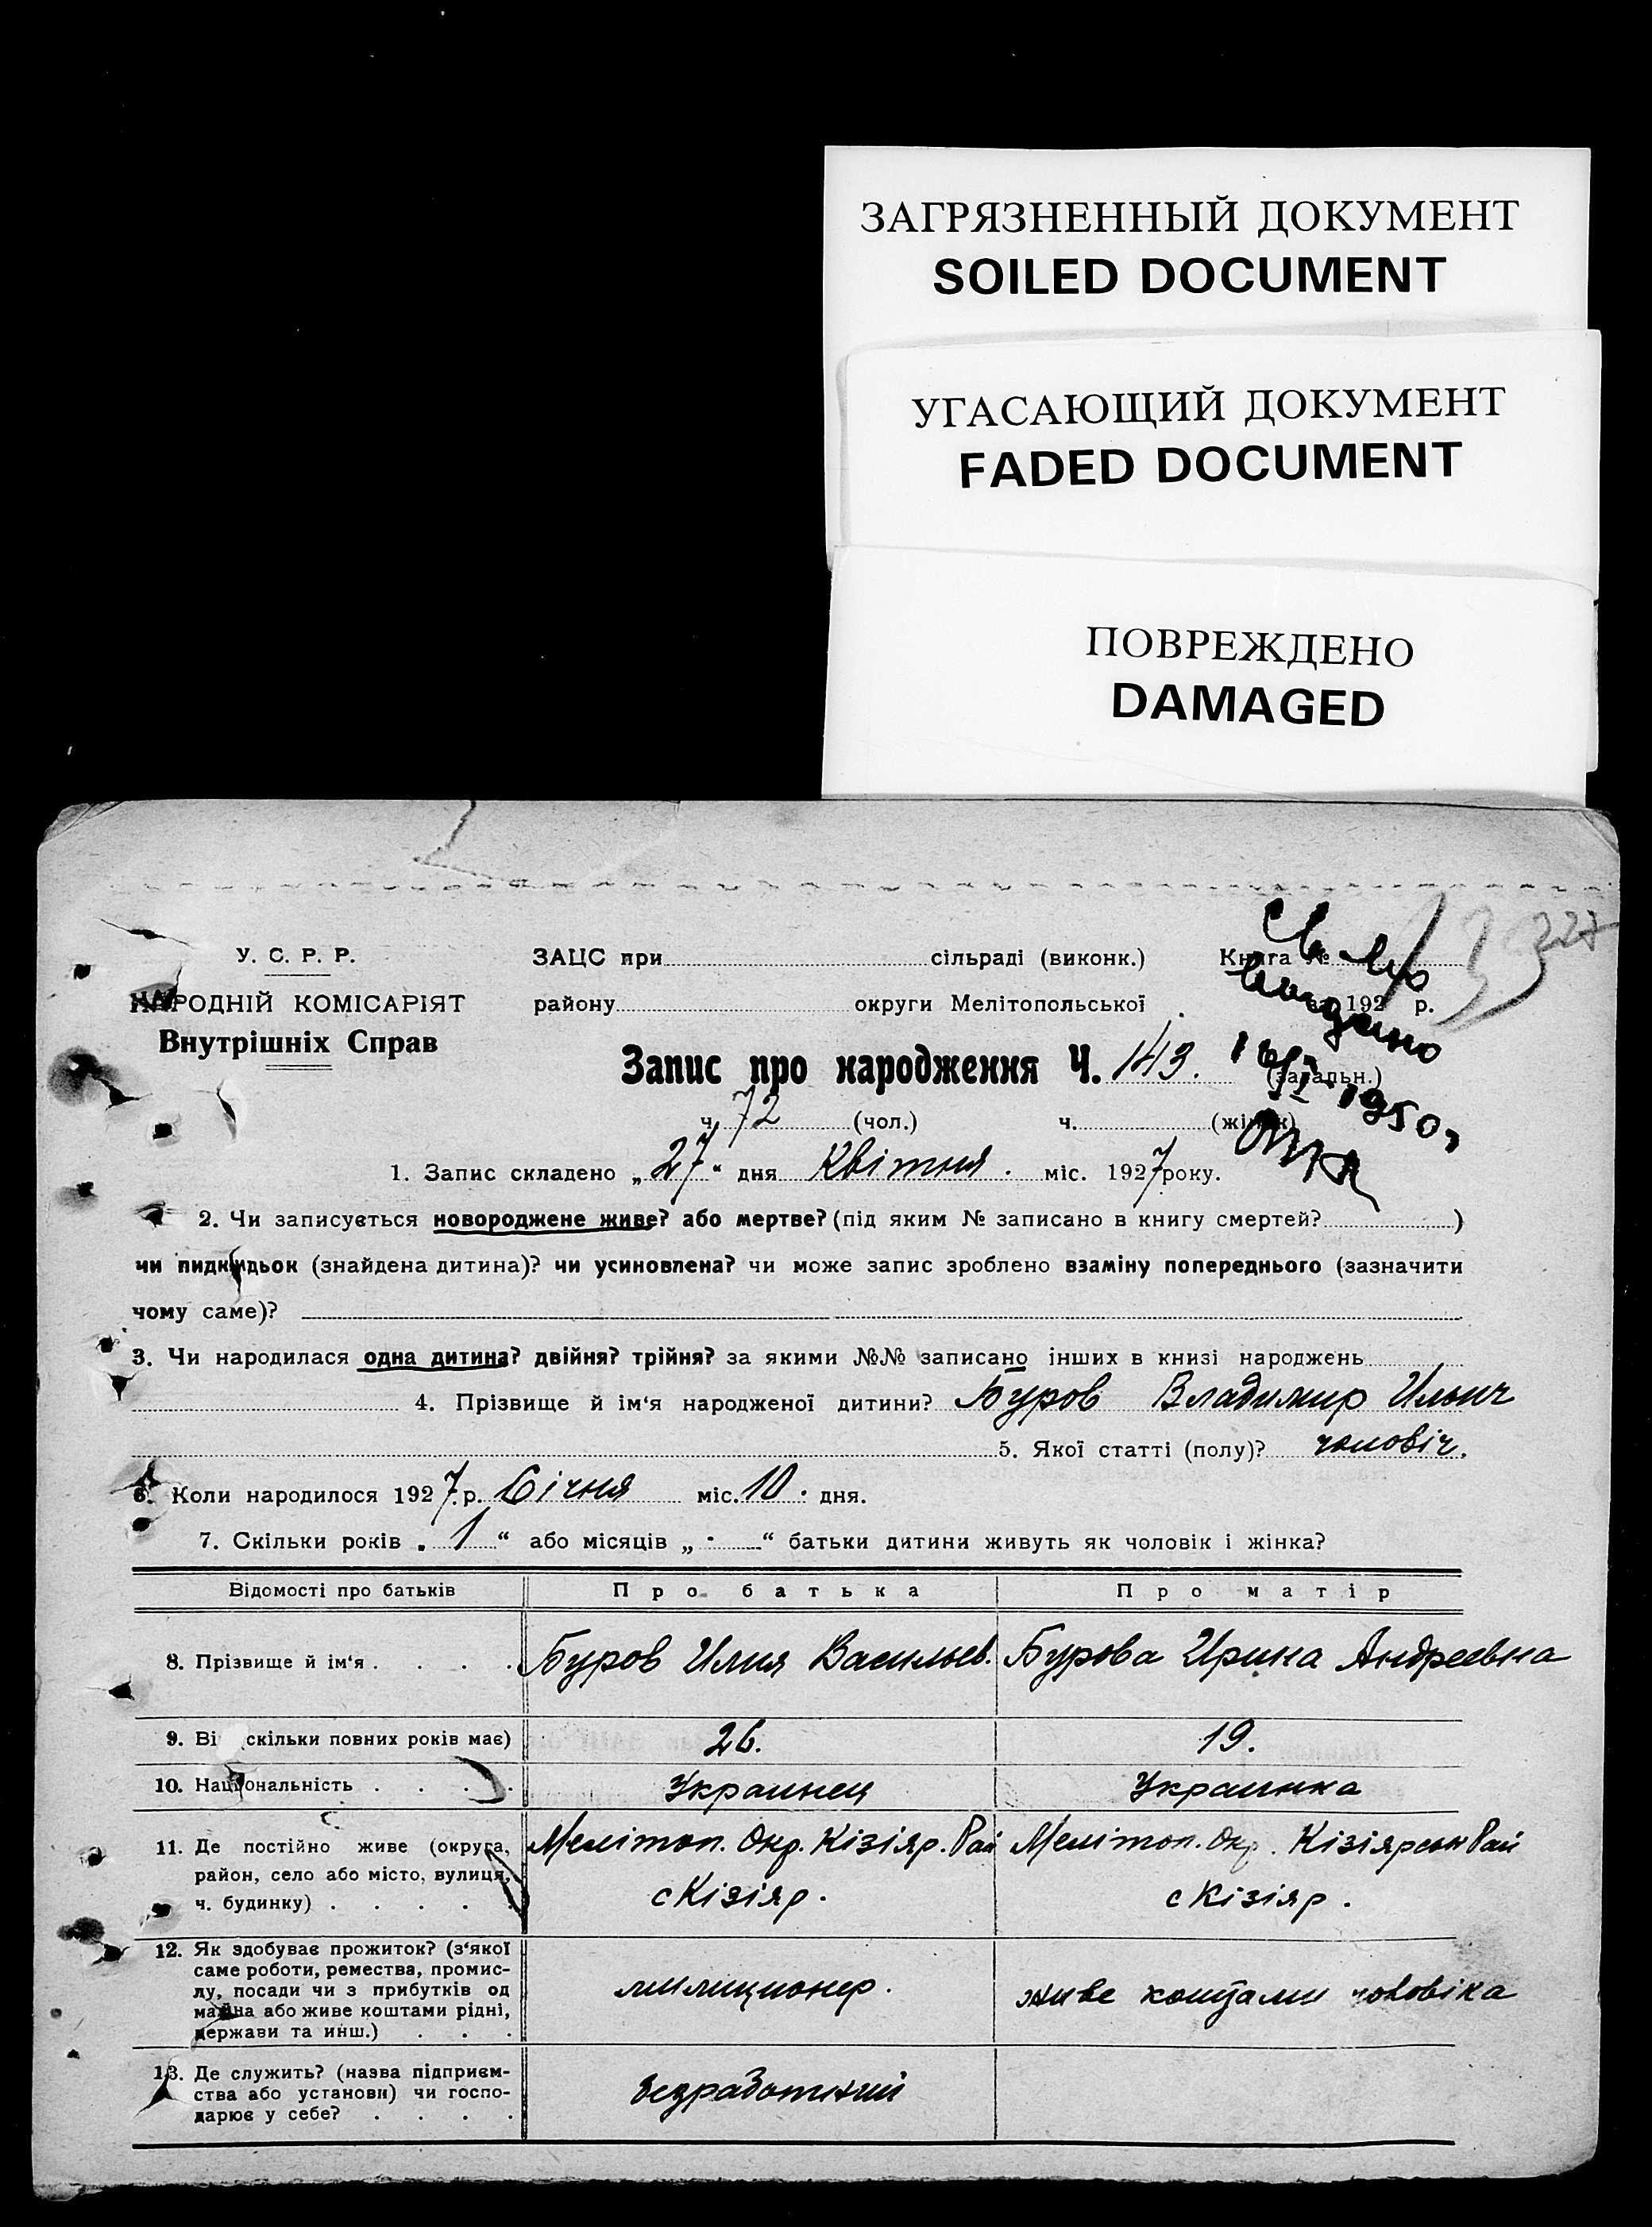 ЗАГРЯЗНЕННЫЙ ДОКУМЕНТ
SOILED DOCUMENT
УГАСАЮЩИЙ ДОКУМЕНТ
FADED DOCUMENT
ПОВРЕЖДЕНО
DAMAGED
327
У. С. Р. Р.
НАРОДНІЙ КОМІСАРІЯТ
Внутрішніх Справ
ЗАЦС при сільраді (виконк.) Книга №
району округи Мелітопольської 192 р.
видано
1950
Запис про народження Ч. 143. (загальн.)
ч. 72 (чол.) ч. (жінок)
1. Запис складено „27“ дня Квітня. міс. 1927 року.
2. Чи записується новороджене живе? або мертве? (під яким № записано в книгу смертей? )
чи пидкидьок (знайдена дитина)? чи усиновлена? чи може запис зроблено взаміну попереднього (зазначити
чому саме)?
3. Чи народилася одна дитина? двійня? трійня? за якими №№ записано інших в книзі народжень
4. Прізвище й ім‘я народженої дитини? Буров Владимир Ильич
5. Якої статті (полу)? чоловіч.
6. Коли народилося 1927 р. Січня міс. 10. дня.
7. Скільки років „1“ або місяців „-“ батьки дитини живуть як чоловік і жінка?
Відомості про батьків Про батька Про матір
8. Прізвище й ім‘я . . . . Буров Илия Васильев. Бурова Ирина Андреевна
9. Ві скільки повних років має) 26. 19.
10. Національність . . . . Украинец Украинка
11. Де постійно живе (округа, район, село або місто, вулиця, ч. будинку) . . . . Мелітоп. Окр. Кізіяр. Рай с Кізіяр. Мелітоп. Окр. Кізіярськ Рай с Кізіяр.
12. Як здобуває прожиток? (з‘якої саме роботи, ремества, промислу, посади чи з прибутків од майна або живе коштами рідні, держави та инш.) . . . милиционер. живе коштами чоловіка
13. Де служить? (назва підприємства або установи) чи господарює у себе? . . . . безработний